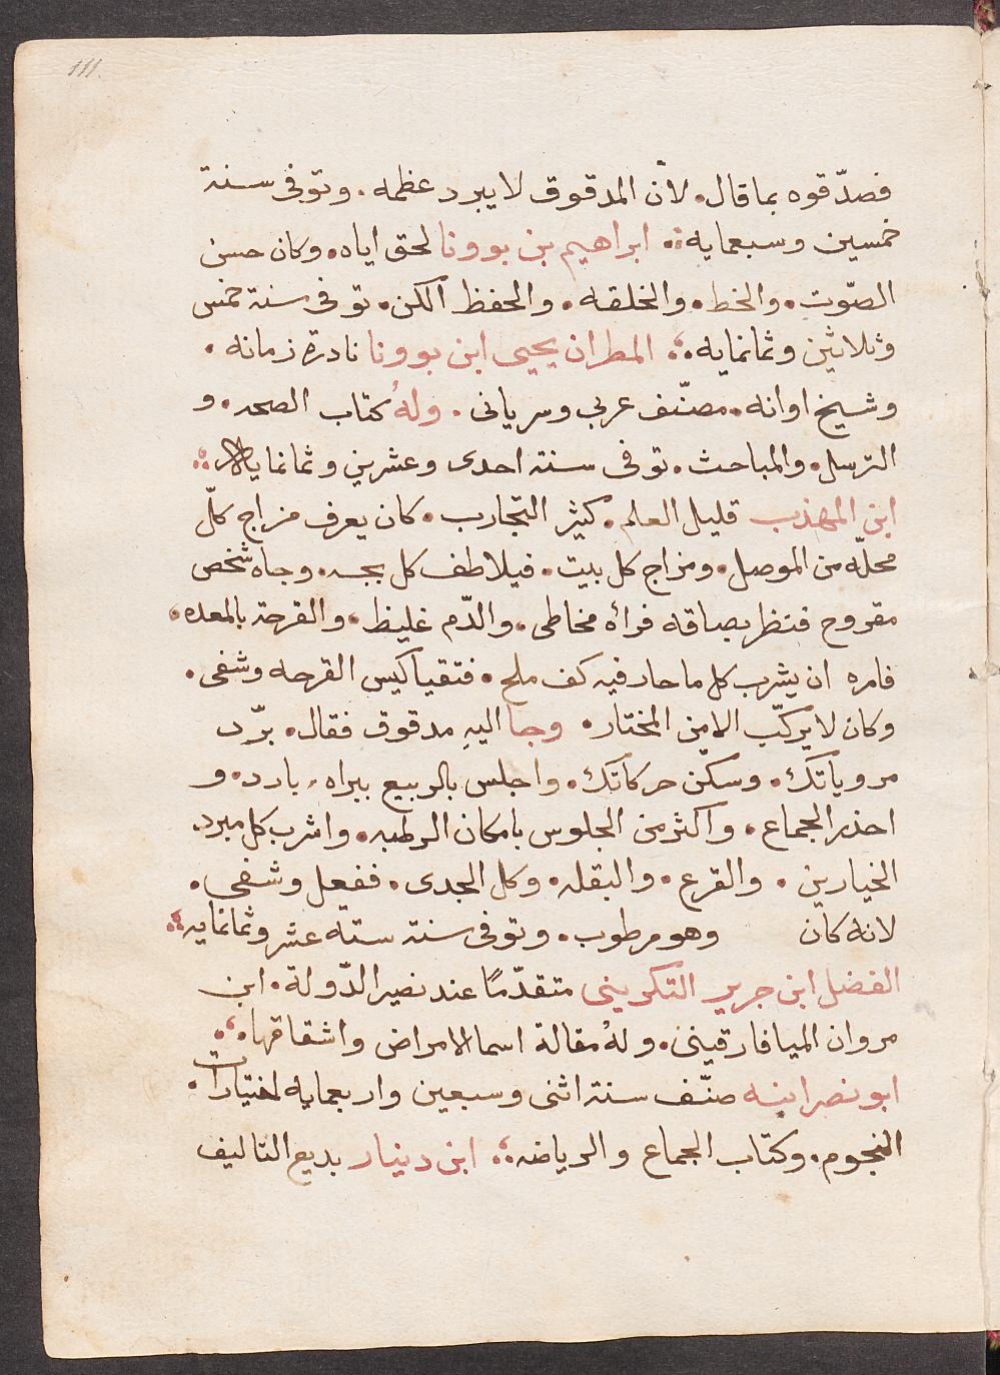 111.
فصدّقوه بما قال. لأن المدقوق لا يبرد عظمه. وتوفى سنة
خمسين وسبعمايه. ابراهيم بن بوونا لحق اياه. وكان حسن
الصّوت. والخط. والخلقه. والحفظ الكن. توفى سنة خمس
وثلاثين وثمانمايه. المطران يحيى ابن بوونا نادرة زمانه.
وشيخ اوانه. مصنّف عربي وسرياني. ولهُ كتاب الصحه. و
الترسل. والمباحث. توفى سنة احدى وعشرين وثمانمايه
ابن المهذب قليل العلم. كثير التجارب. كان يعرف مزاج كلّ
محلّه من الموصل. ومزاج كل بيت. فيلاطف كل بحسه. وجاه شخص
مقروح فنظر بصاقه فرأه مخاطى. والدّم غليظ. والقرحة بالمعده.
فامره ان يشرب كل ما حار فيه كف ملح. فتقيا كيس القرحه وشفى.
وكان لا يركّب الا من المختار. وجا اليهِ مدقوق فقال. برّد
مروياتك. وسكن حركاتك. واجلس بالربيع ببراه. بارد. و
احذر الجماع. واكثر من الجلوس بامكان الرطبه. واشرب كل مبرد.
الخيارين. والقرع. والبقله. وكل الجدى. ففعل وشفى.
لانه كان وهو مرطوب. وتوفى سنة ستة عشر وثمانمايه
الفضل ابن جرير التكريني متقدّمًا عند نصير الدّولة. ابن
مروان الميافارقيني. ولهُ مقالة اسما الامراض واشقاقها.
ابو نصر ابنه صنّف سنة اثنى وسبعين واربعمايه اختيارات.
النجوم. وكتاب الجماع والرياضه. ابن دينار بديع التاليف